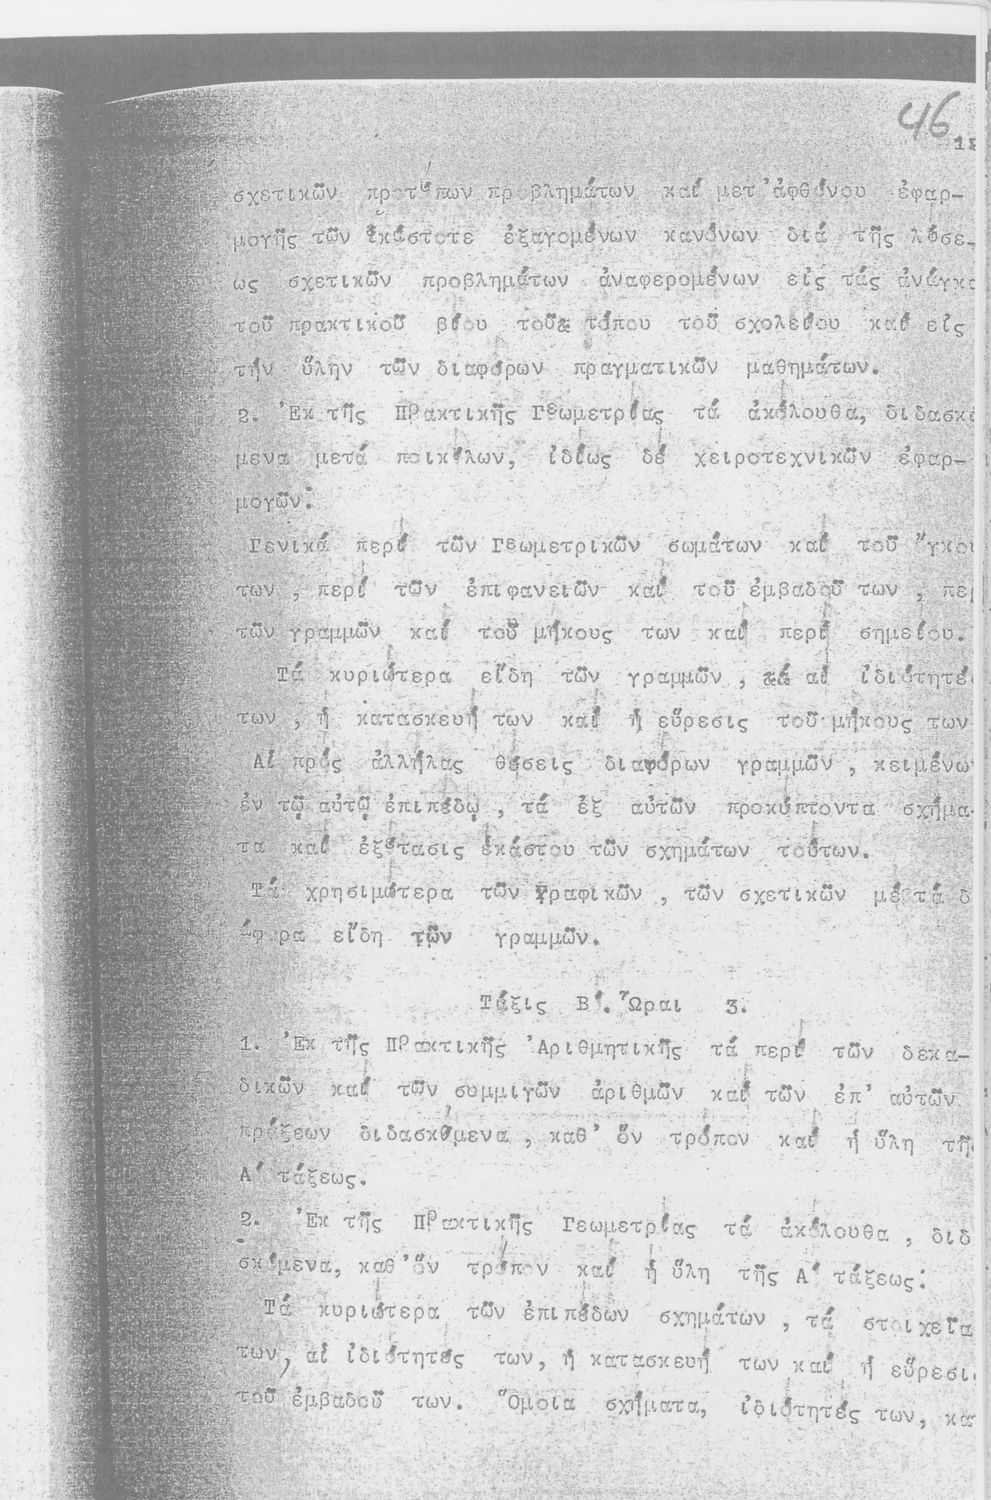 46
σχετικῶν προτύπων προβλημάτων καί μετ'ἀφθόνου ἐφαρ-
μογῆς τῶν ἑκάστοτε ἐξαγομένων κανόνων διά τῆς λύσε-
ως σχετικῶν προβλημάτων ἀναφερομένων εἰς τάς ἀνάγκα
τοῦ πρακτικοῦ βίου τοῦ τόπου τοῦ σχολείου καί εἰς
τήν ὕλην τῶν διαφόρων πραγματικῶν μαθημάτων.
2. Ἐκ τῆς Πρακτικῆς Γεωμετρίας τά ἀκόλουθα, διδασκό
μενα μετά ποικίλων, ἰδίως δέ χειροτεχνικῶν ἐφαρ-
μογῶν:
Γενικά περί τῶν Γεωμετρικῶν σωμάτων καί τοῦ ὄγκου
των , περί τῶν ἐπιφανειῶν καί τοῦ ἐμβαδοῦ των , περ
τῶν γραμμῶν καί τοῦ μήκους των καί περί σημείου.
Τά κυριώτερα εἴδη τῶν γραμμῶν , αἱ ἰδιότητές
των , ἡ κατασκευή των καί ἡ εὕρεσις τοῦ μήκους των
Αἱ πρός ἀλλήλας θέσεις διαφόρων γραμμῶν , κειμένων
ἐν τῷ αὐτῷ ἐπιπέδῳ , τά ἐξ αὐτῶν προκύπτοντα σχήμα-
τα καί ἐξέτασις ἑκάστου τῶν σχημάτων τούτων.
Τά χρησιμώτερα τῶν Γραφικῶν , τῶν σχετικῶν μέ τά δ
άφορα εἴδη τῶν γραμμῶν.
Τάξις Β΄. Ὧραι 3.
1. Ἐκ τῆς Πρακτικῆς Ἀριθμητικῆς τά περί τῶν δεκα-
δικῶν καί τῶν συμμιγῶν ἀριθμῶν καί τῶν ἐπ' αὐτῶν
πράξεων διδασκόμενα , καθ' ὅν τρόπον καί ἡ ὕλη τῆς
Α΄ τάξεως.
2. Ἐκ τῆς Πρακτικῆς Γεωμετρίας τά ἀκόλουθα , διδ
σκόμενα, καθ'ὅν τρόπον καί ἡ ὕλη τῆς Α΄ τάξεως:
Τά κυριώτερα τῶν ἐπιπέδων σχημάτων , τά στοιχεῖα
των, αἱ ἰδιότητές των, ἡ κατασκευή των καί ἡ εὕρεσι
τοῦ ἐμβαδοῦ των. Ὅμοια σχήματα, ἰδιότητές των, κατ